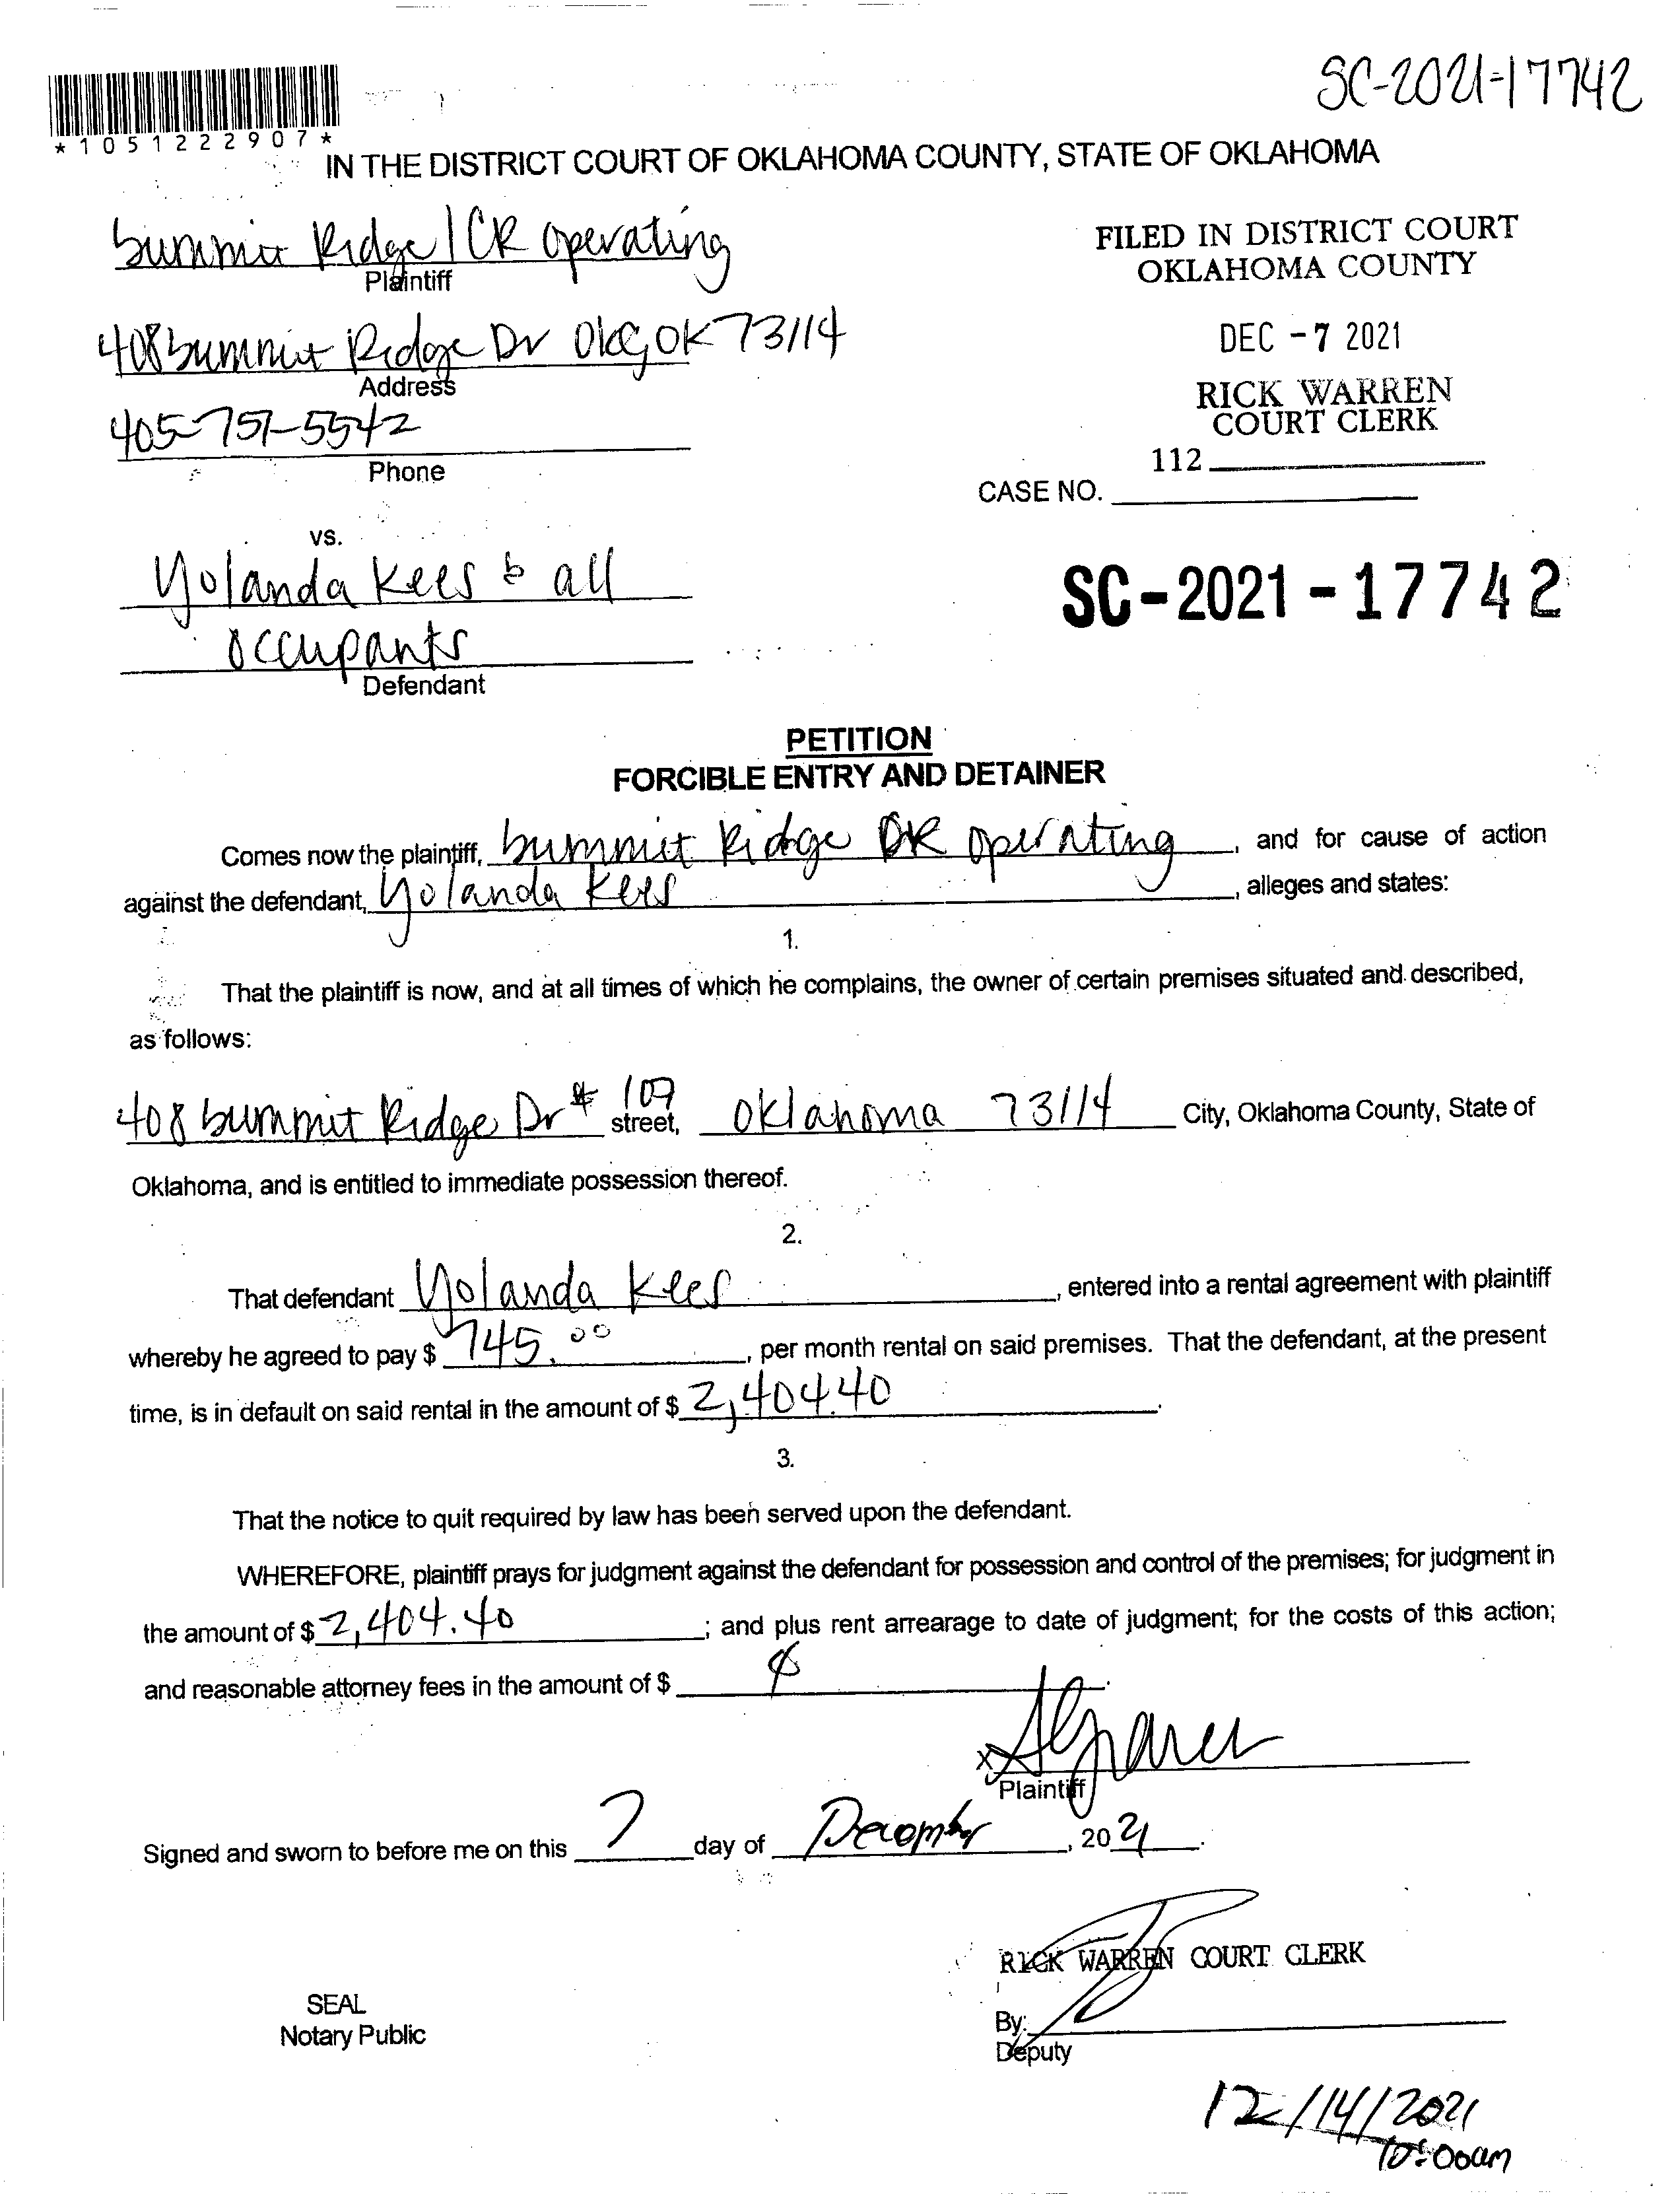 SC-2021-17742
*1051222907*
IN THE DISTRICT COURT OF OKLAHOMA COUNTY, STATE OF OKLAHOMA
Summit Ridge/CR Operating
Plaintiff
FILED IN DISTRICT COURT
OKLAHOMA COUNTY
408 Summit Ridge Dr OKC, OK 73114
Address
DEC -7 2021
RICK WARREN
COURT CLERK
405-751-5542
Phone
112
CASE NO.
vs.
Yolanda Kees & all
occupants
Defendant
SC-2021-17742
PETITION
FORCIBLE ENTRY AND DETAINER
Comes now the plaintiff, Summit Ridge CR Operating, and for cause of action
against the defendant, Yolanda Kees, alleges and states:
1.
That the plaintiff is now, and at all times of which he complains, the owner of certain premises situated and described,
as follows:
408 Summit Ridge Dr # 109 street, Oklahoma 73114 City, Oklahoma County, State of
Oklahoma, and is entitled to immediate possession thereof.
2.
That defendant Yolanda Kees, entered into a rental agreement with plaintiff
whereby he agreed to pay $ 745.00, per month rental on said premises. That the defendant, at the present
time, is in default on said rental in the amount of $ 2,404.40.
3.
That the notice to quit required by law has been served upon the defendant.
WHEREFORE, plaintiff prays for judgment against the defendant for possession and control of the premises; for judgment in
the amount of $ 2,404.40; and plus rent arrearage to date of judgment; for the costs of this action;
and reasonable attorney fees in the amount of $
X
Plaintiff
Signed and sworn to before me on this 7 day of December, 2021.
RICK WARREN COURT CLERK
SEAL
Notary Public
By:
Deputy
12/14/2021
10:00am